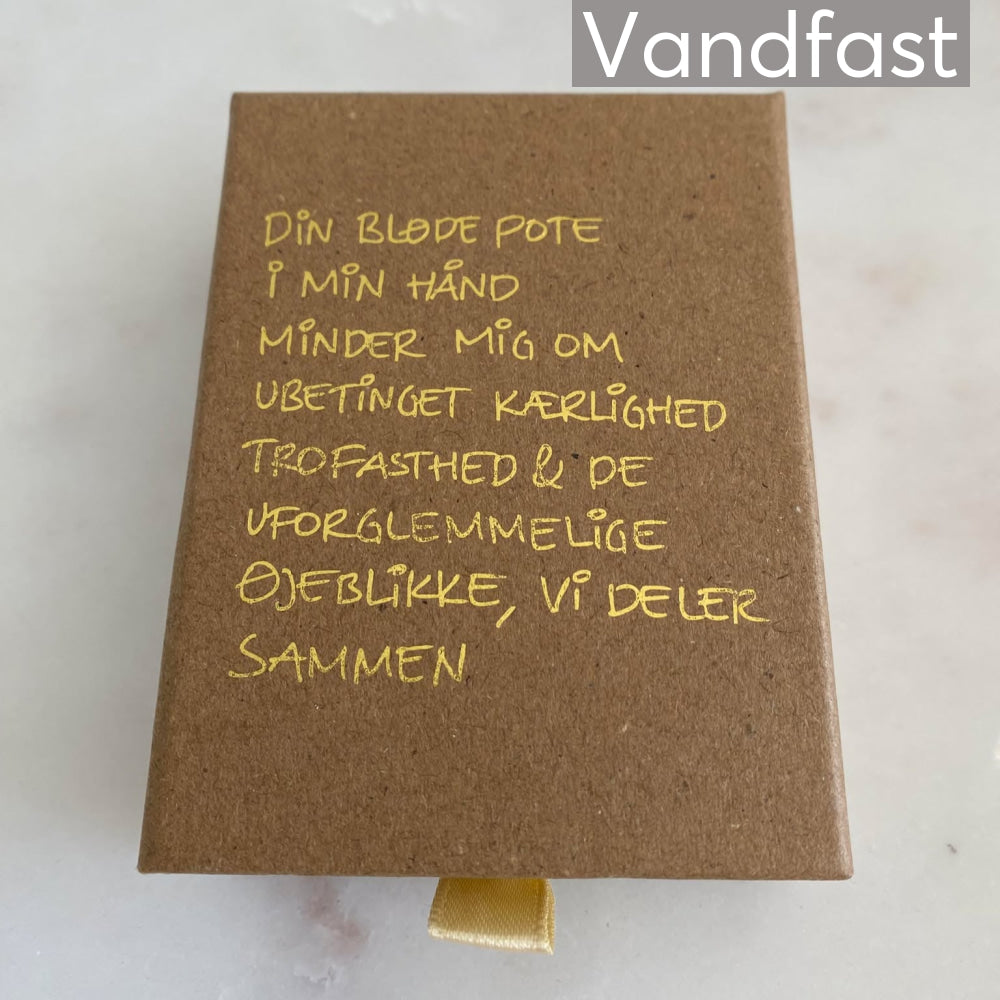 Vandfast
DIN BLØDE POTE
I MIN HÅND
MINDER MIG OM
UBETINGET KÆRLIGHED
TROFASTHED & DE
UFORGLEMMELIGE
ØJEBLIKKE, VI DELER
SAMMEN